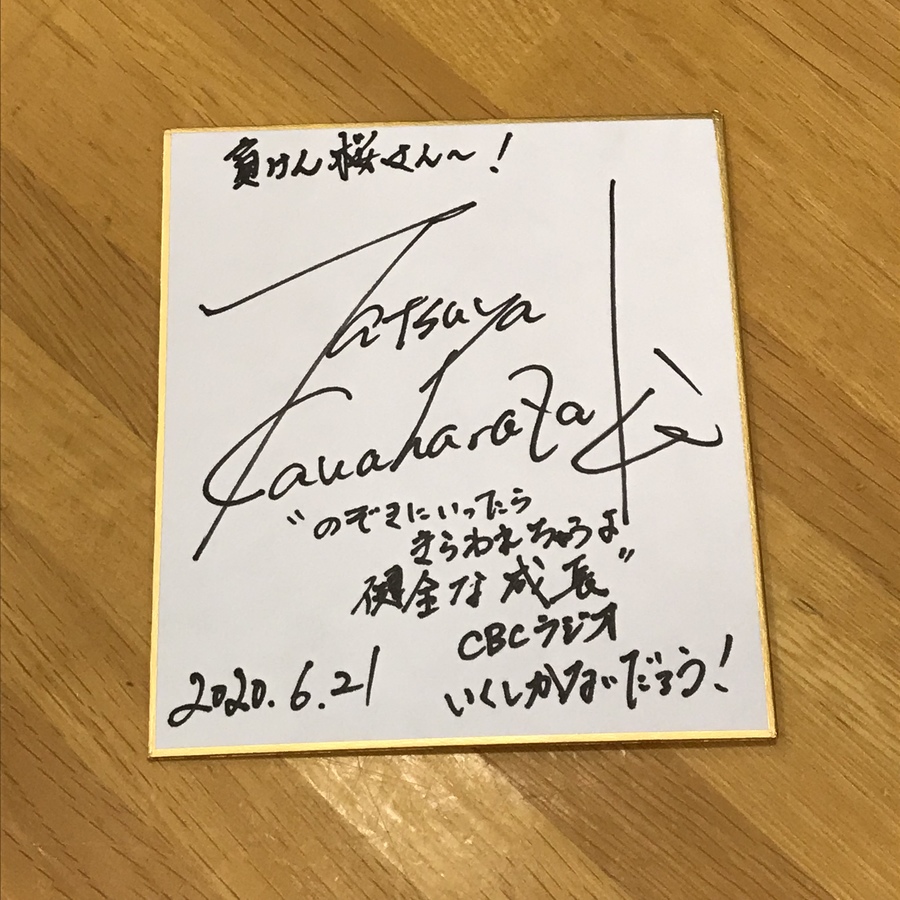 負けん桜さん〜!
Tatsuya
Kawaharazaki
"のぞきにいったら
きらわれちゃうよ
健全な成長"
CBCラジオ
2020.6.21
いくしかないだろう!